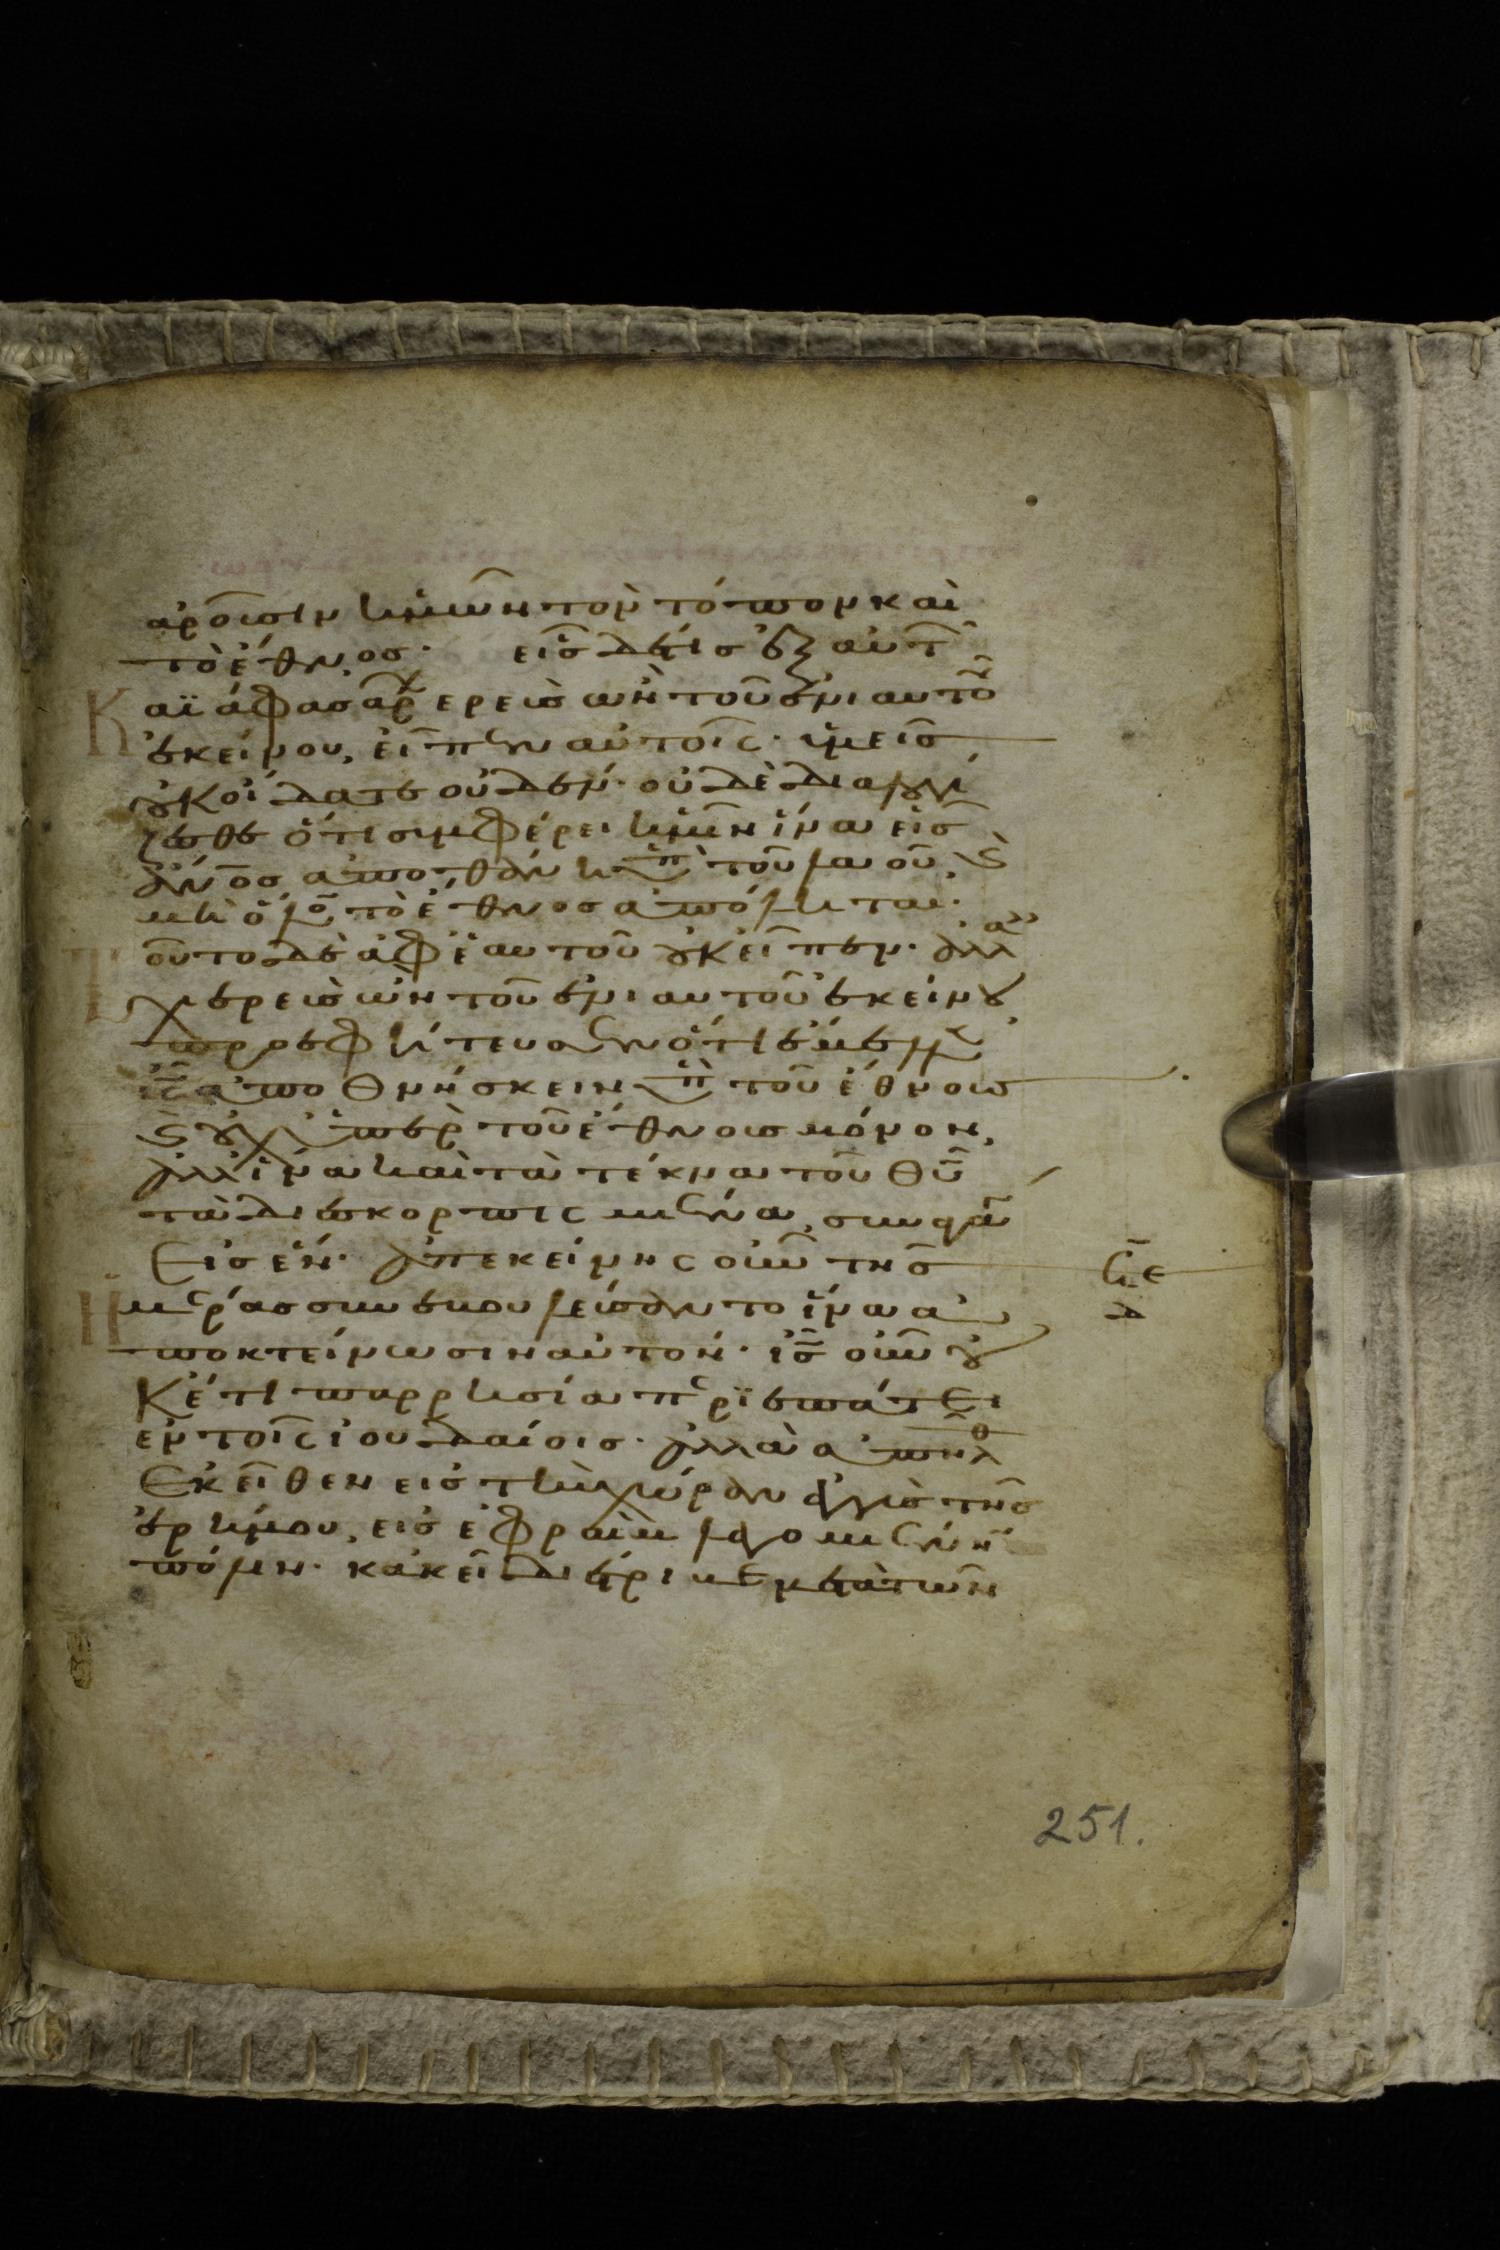 αροῦσιν ἡμῶν τὸν τόπον καὶ
τὸ ἔθνος· εἷς δέ τις ἐξ αὐτ
Καϊάφας ἀρχερεὺς ὢν τοῦ ἐνιαυτοῦ
ἐκείνου, εἶπεν αὐτοῖς· ὑμεῖς
οὐκ οἴδατε οὐδέν· οὐδὲ διαλογί
ζεσθε ὅτι συμφέρει ἡμῖν ἵνα εἷς
ἄνος ἀποθάνη ὑπ τοῦ λαοῦ, καὶ
μὴ ὅλον τὸ ἔθνος ἀπόληται·
Τοῦτο δὲ ἀφ' ἑαυτοῦ οὐκ εἶπεν· ἀλλὰ ἀρ
χιερεὺς ὢν τοῦ ἐνιαυτοῦ ἐκείνου
προεφήτευσεν ὅτι ἔμελλεν
ις ἀποθνήσκειν ὑπ τοῦ ἔθνους
καὶ οὐχ ὑπὲρ τοῦ ἔθνους μόνον,
ἀλλ' ἵνα καὶ τὰ τέκνα τοῦ θυ
τὰ διεσκορπισμένα, συναγά
γη εἰς ἕν· ἀπ' ἐκείνης οὖν τῆς
Ημέρας συνεβουλεύσαντο ἵνα ἀ
ποκτείνωσιν αὐτόν· ις οὖν οὐ
κέτι παρρησία περϊεπάτει
ἐν τοῖς ἰουδαίοις· ἀλλὰ ἀπῆλθ
ἐκεῖθεν εἰς τὴν χώραν ἐγγὺς τῆς
ἐρήμου, εἰς ἐφραὶμ λεγομένην
πόλιν· κἀκεῖ διέτριβεν μετὰ τῶν
251.